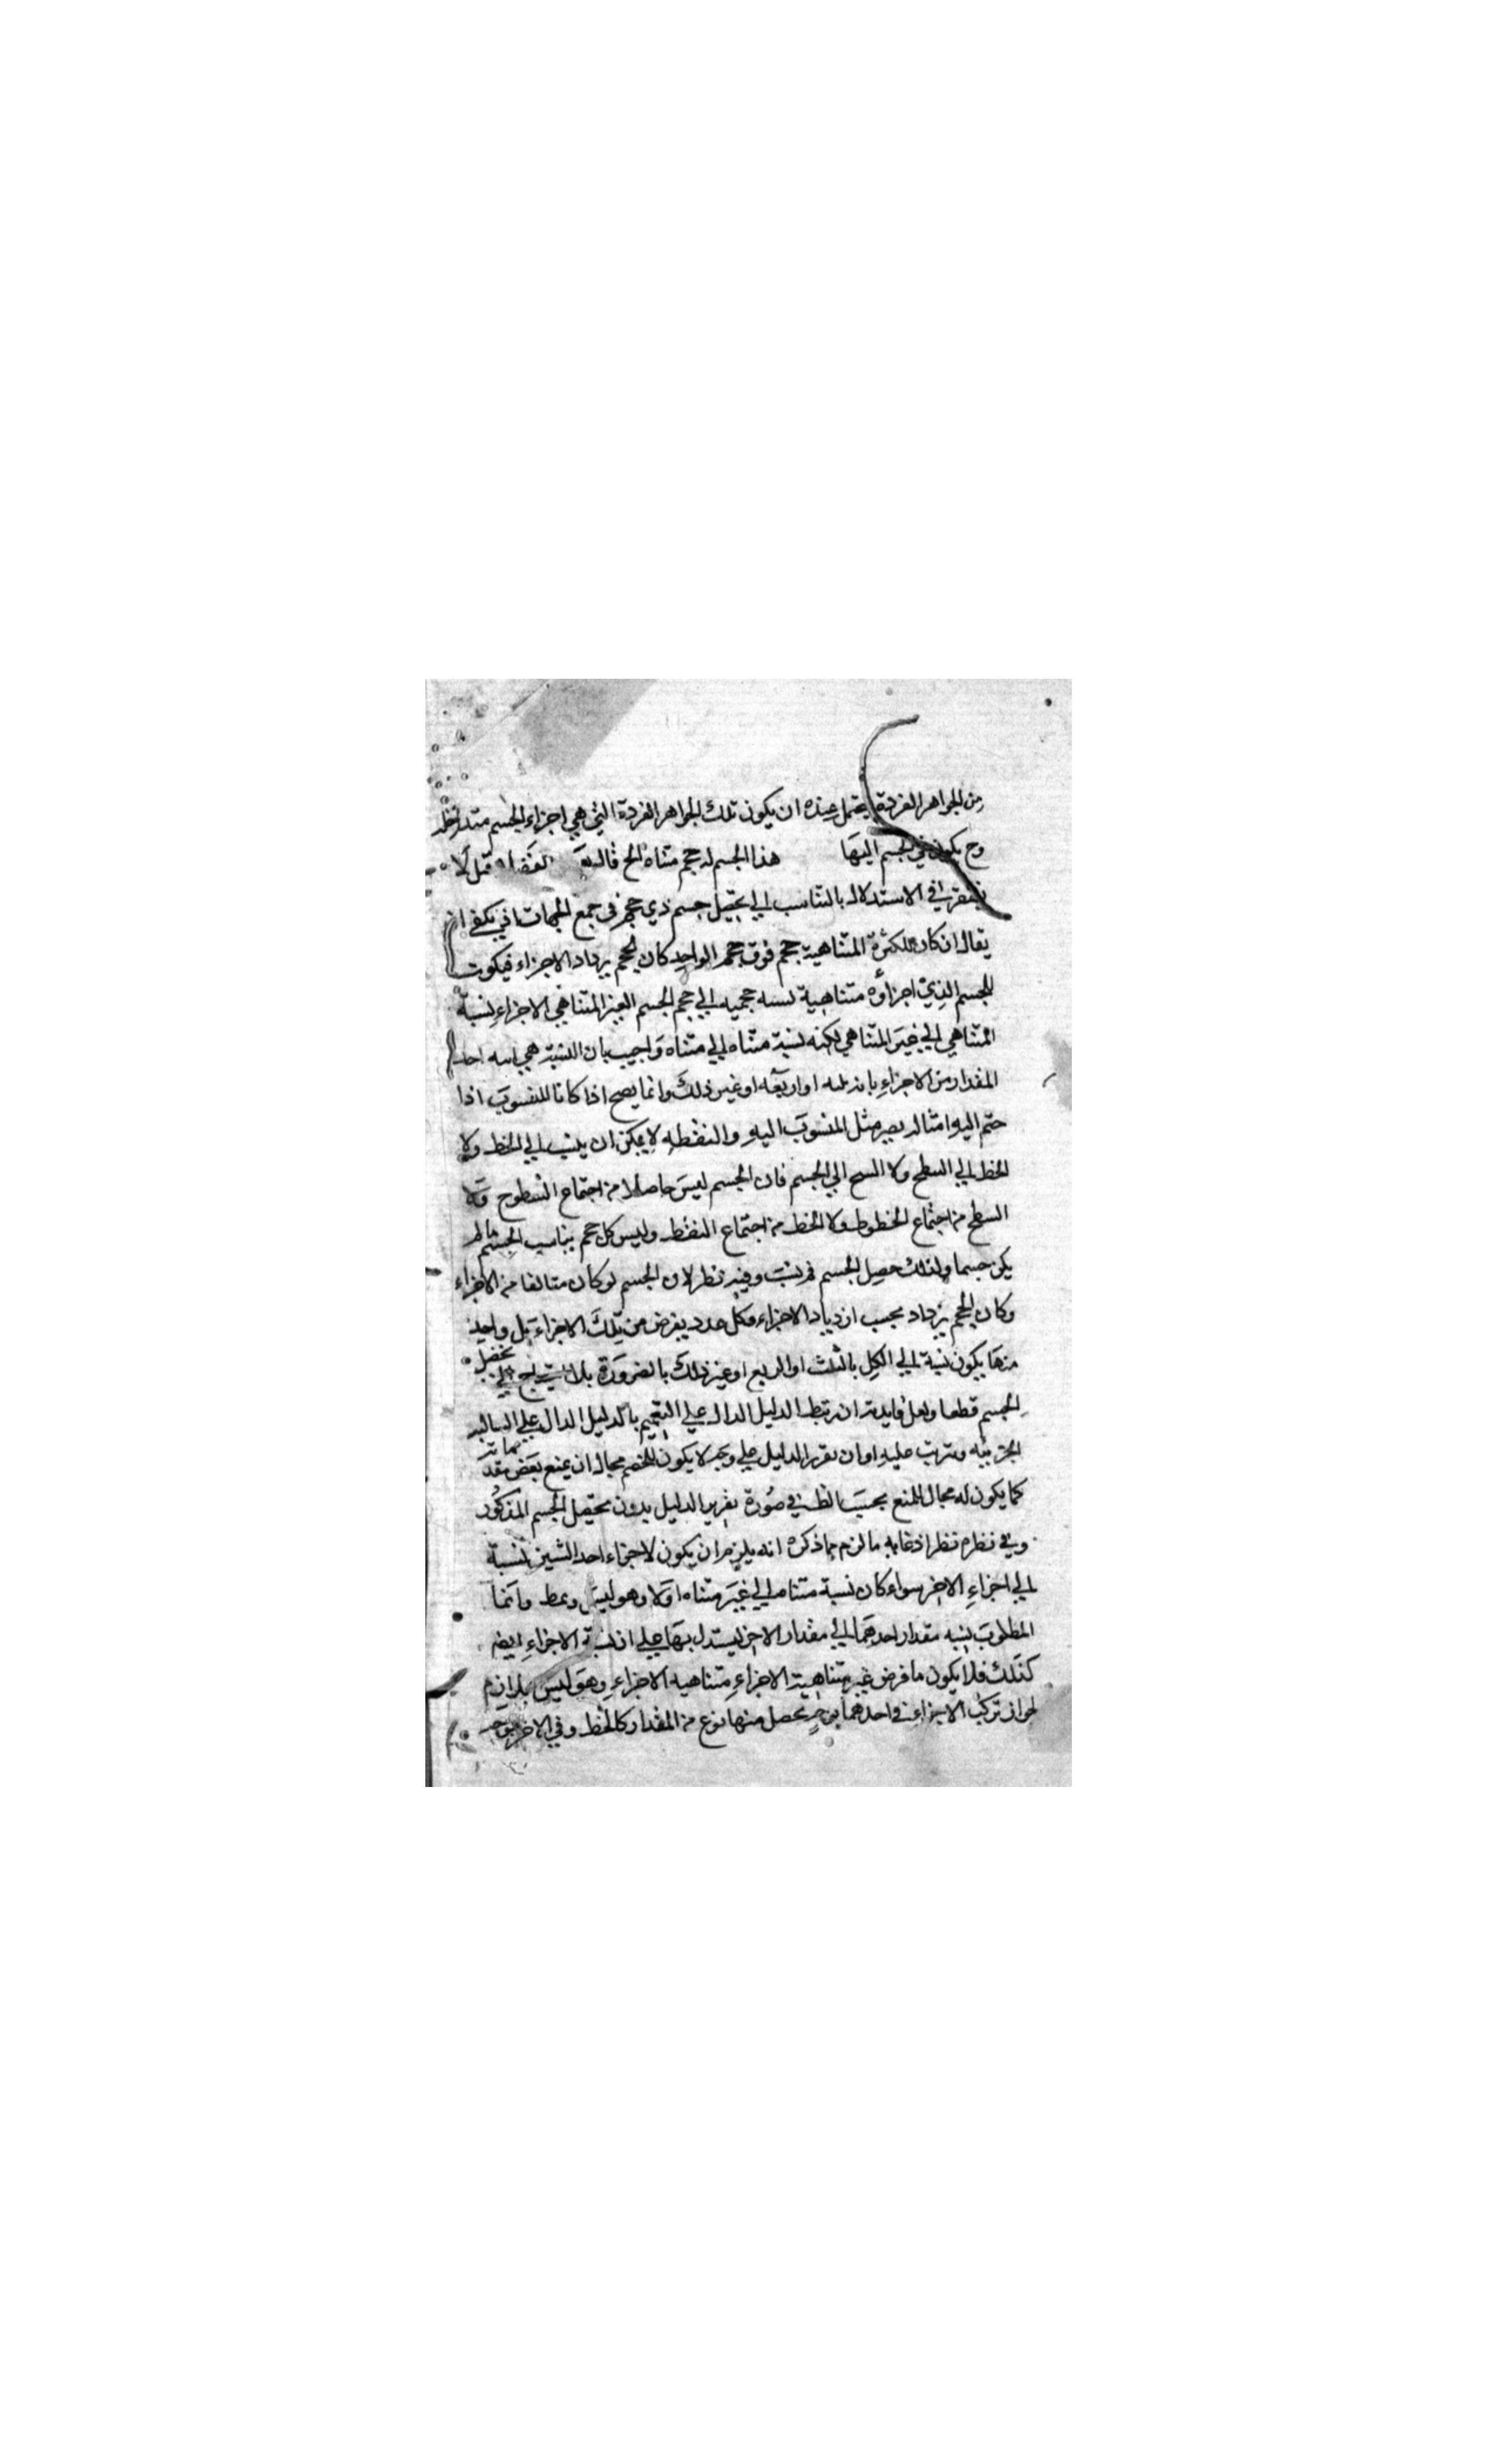 من الجواهر الفردة يحتمل عنده ان يكون تلك الجواهر الفردة التي هي اجزاء الجسم متداخلة
وح يكون في الجسم اليها هذا الجسم له حجم متناه الخ قال
يفتقر في الاستدلال بالتناسب الي تحصيل جسم ذي حجم في جمع الجهات اذ يكفي ان
يقال ان كان للكثرة المتناهية حجم فوق حجم الواحد كان الحجم يزداد الاجزاء فيكون
للجسم الذي اجزاؤه متناهية نسبه حجميه الي حجم الجسم الغير المتناهي الاجزاء نسبة
المتناهي الي غير المتناهي لكنه نسبة متناه الي متناه واجيب بان النسبة هي احد
المقدار من الاجزاء بانه ثلثه او اربعه او غير ذلك وانما يصح اذا كانا المنسوب اذا
ضم اليه امثاله يصير مثل المنسوب اليه والنقطه لا يمكن ان ينسب الي الخط ولا
الخط الي السطح ولا السح الي الجسم فان الجسم ليس حاصلا من اجتماع السطوح ولا
السطح من اجتماع الخطوط ولا الخط من اجتماع النقط وليس كل حجم يناسب الجسم مالم
يكن جسما ولذلك حصل الجسم ثم نسب وفيه نظر لان الجسم لو كان متالفا من الاجزاء
وكان الحجم يزداد بحسب ازدياد الاجزاء فكل عدد يفرض من تلك الاجزاء بل واحد
منها يكون نسبة الي الكل بالثلث او الربع او غير ذلك بالضرورة بلا الي تحصل
الجسم قطعا ولعل فايدته ان ربط الدليل الدال علي التعميم بالدليل الدال علي السالبه
الجزئيه وترتب عليه او ان تقرر الدليل علي وجه لا يكون للخصم مجال ان يمنع بعض مقدماته
كما يكون له مجال المنع بحسب الظ في صورة تقرير الدليل بدون تحصيل الجسم المذكور
وفي نظره نظر اذ غايه ما لزم مما ذكره انه يلزم ان يكون لاجزاء احد الشيئين نسبة
الي اجزاء الاخر سواء كان نسبة متناه الي غير متناه اولا وهو ليس وانما
المطلوب نسبه مقدار احدهما الي مقدار الاخر ليستدل بها علي ان نسبة الاجزاء ايضم
كذلك فلا يكون ما فرض غير متناهية الاجزاء متناهيه الاجزاء وهو ليس بلازم
لجواز تركب الاجزاء في احدهما بوجه يحصل منها نوع من المقدار كالخط وفي الاخر بوجه